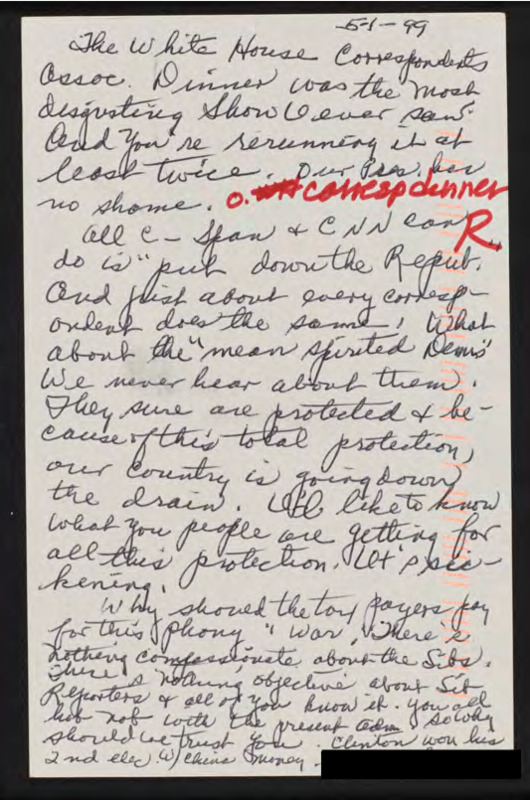 5-1-99
The White House Correspondents
Assoc. Dinner was the most
disgusting show I ever saw.
And You're rerunning it at
least twice. Our Pres. has
no shame. O. correspdinner
R
All C-Span & CNN can
do is "put down the Repub.
And just about every corresp-
ondent does the same! What
about the "mean spirited Dems"
We never hear about them.
They sure are protected & be-
cause of this total protection,
our country is going down
the drain. I'd like to know
what you people are getting for
all this protection. It's sic-
kening.
Why should the tax payers pay
for this phony "War". There's
nothing compassionate about the Libs.
There is nothing objective about
Reporters & all of you know it. You all
hob nob with the present adm so why
should we trust you. Clinton won his
2nd elec. w/ China money.